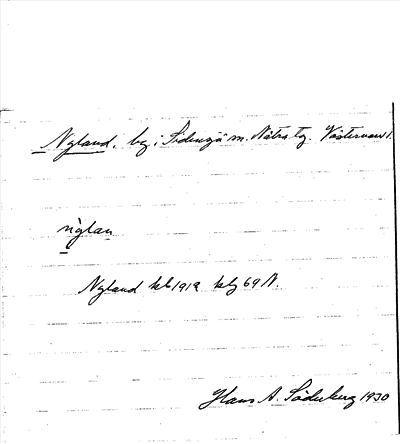 Nyland, by i Sidensjö sn. Nätra tg. Västernorrl.
nỳlan
Nyland kb 1912 blg 69 A.
Hans A. Söderberg 1930